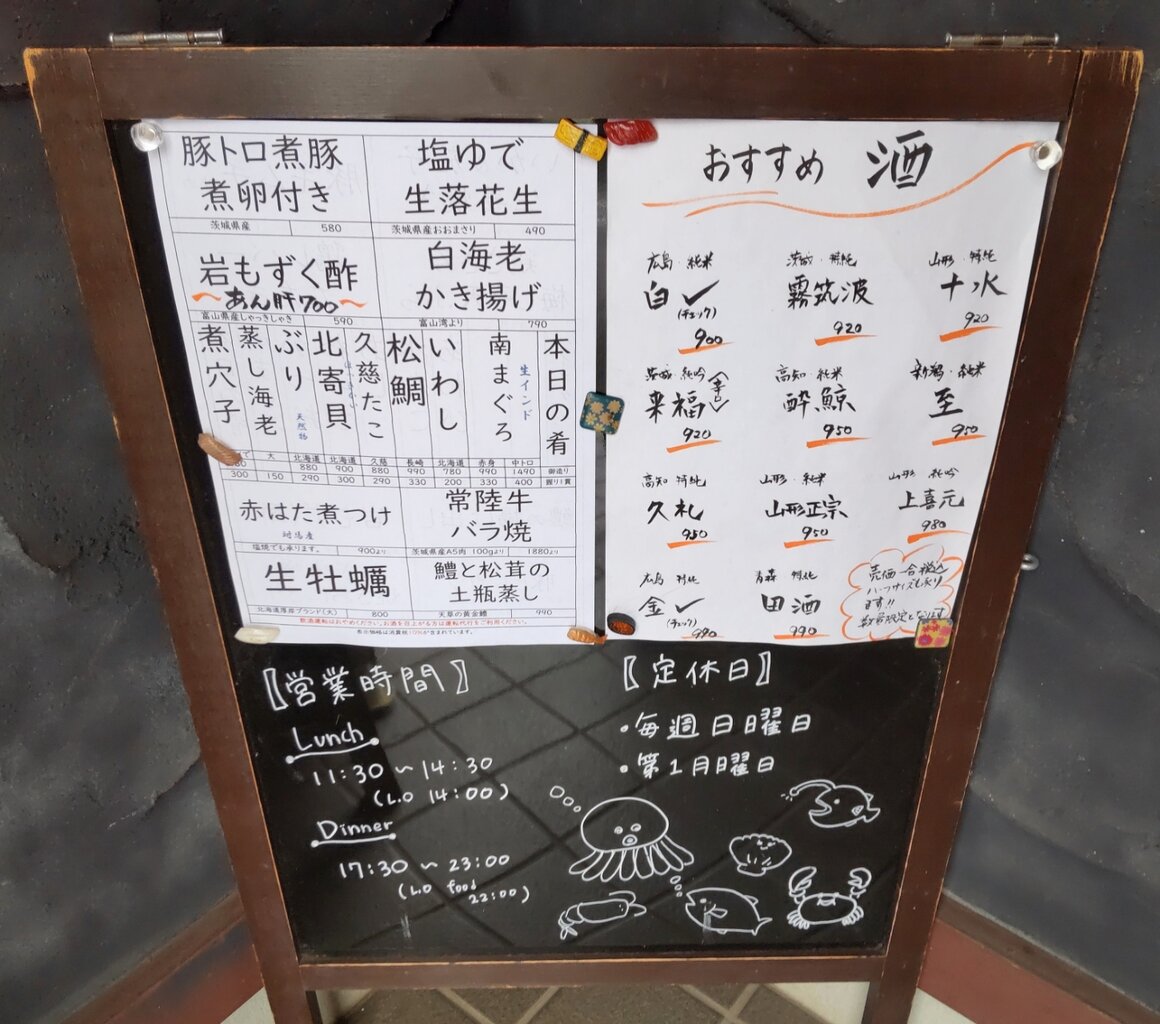 豚トロ煮豚
煮卵付き
茨城県産 580
塩ゆで
生落花生
茨城県産おおまさり 490
岩もずく酢
〜あん肝700〜
富山県産しゃっきしゃき 590
白海老
かき揚げ
富山湾より 790
本日の肴
南まぐろ
生インド
いわし
松鯛
久慈たこ
北寄貝
ぶり
天然物
蒸し海老
煮穴子
大 北海道 北海道 久慈 長崎 北海道 赤身 中トロ
880 900 880 990 780 990 1490 御造り
300 150 290 300 290 330 200 330 400 握り1貫
赤はた煮つけ
対馬産
塩焼でも承ります。 900より
常陸牛
バラ焼
茨城県産A5肉 100gより 1880より
生牡蠣
北海道厚岸ブランド(大) 800
鱧と松茸の
土瓶蒸し
天草の黄金鱧 990
飲酒運転はおやめください。お酒を召上がる方は運転代行をご利用ください。
表示価格は消費税10%が含まれています。
おすすめ 酒
広島・純米
白✓
(チェック)
900
茨城・特純
霧筑波
920
山形・特純
十水
920
茨城・純吟
来福
〈辛口〉
920
高知・純米
酔鯨
950
新潟・純米
至
950
高知 特純
久礼
950
山形・純米
山形正宗
950
山形 純吟
上喜元
980
広島 特純
金✓
(チェック)
990
青森 特純
田酒
990
売価一合税込
ハーフサイズも承り
ます!!
数量限定となります
〖営業時間〗
Lunch
11:30 〜 14:30
(L.O 14:00)
Dinner
17:30 〜 23:00
(L.O food 22:00)
【定休日】
・毎週日曜日
・第1月曜日